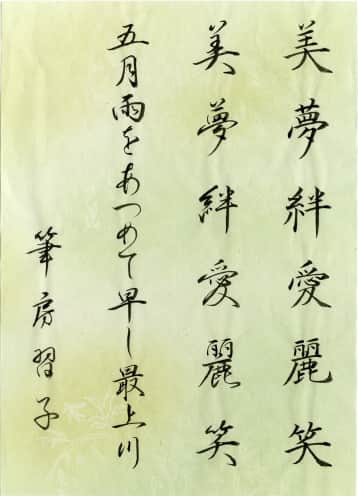 美夢絆愛麗笑
美夢絆愛麗笑
五月雨をあつめて早し最上川
筆房習子